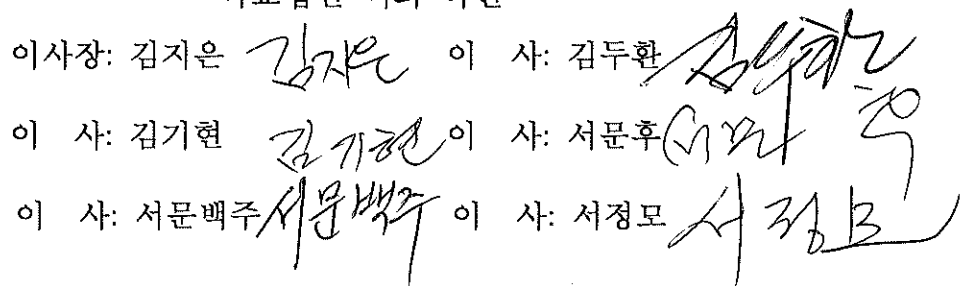 이사장: 김지은 김지은 이 사: 김두환 김두환
이 사: 김기현 김기현 이 사: 서문후 서문후
이 사: 서문백주 서문백주 이 사: 서정모 서정모